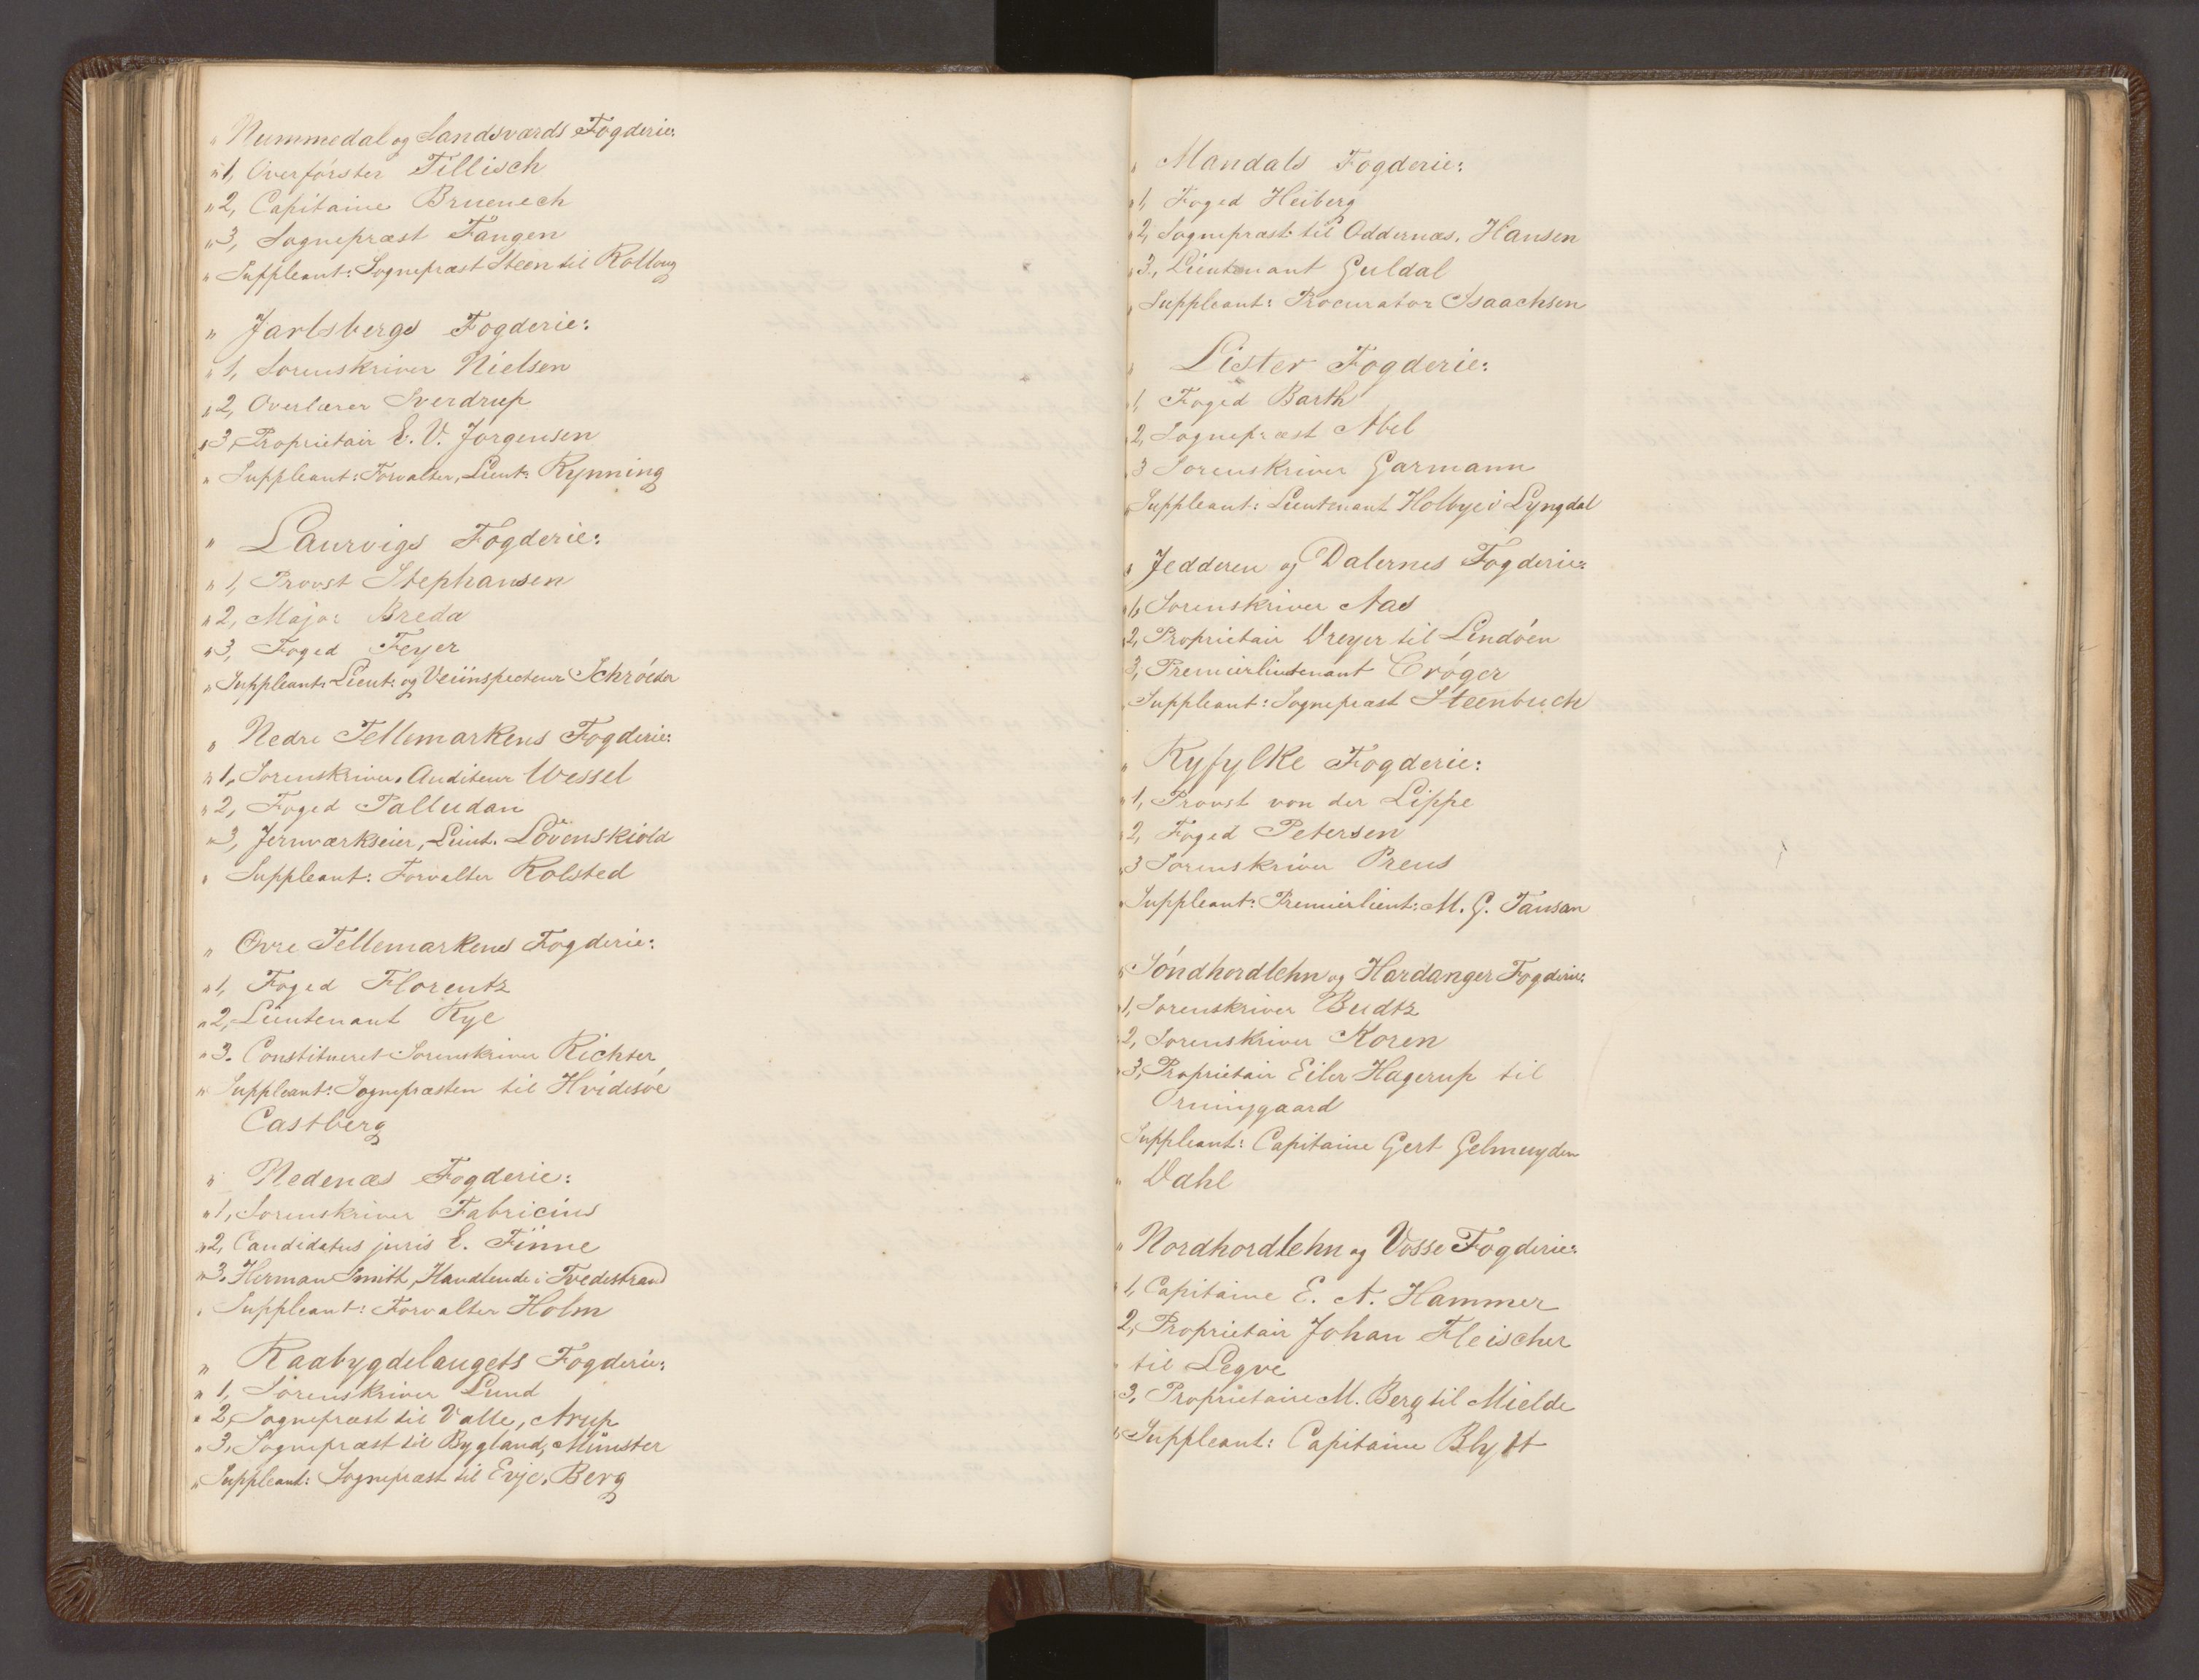 " Nummedal og Sandsværds Fogderie:
" 1, Overførster Tillisch
" 2, Capitaine Bruenech
" 3, Sognepræst Fangen
" Suppleant: Sognepræst Steen til Rolloug
" Jarlsbergs Fogderie:
" 1, Sorenskriver Nielsen
" 2, Overlærer Sverdrup
" 3, Proprietair E. V. Jørgensen
" Suppleant: Forvalter, Lieut: Rynning
" Laurvigs Fogderie:
" 1, Provst Stephansen
" 2, Major Breda
" 3, Foged Feyer
" Suppleant: Lieut: og Veiinspecteur Schrøder
" Nedre Tellemarkens Fogderie:
" 1, Sorenskriver, Auditeur Wessel
" 2, Foged Palludan
" 3, Jernværkseier, Lieut. Løvenskiold
" Suppleant: Forvalter Rolsted
" Øvre Tellemarkens Fogderie:
" 1, Foged Florentz
" 2, Lieutenant Rye
" 3. Constitueret Sorenskriver Richter
" Suppleant: Sognepræsten til Hvidesøe
Castberg
" Nedenæs Fogderie:
" 1, Sorenskriver Fabricius
" 2, Candidatus juris E. Finne
" 3. Herman Smith, Handlende i Tvedestrand
" Suppleant: Forvalter Holm
" Raabygdelaugets Fogderie:
" 1, Sorenskriver Lund
" 2, Sognepræst til Valle, Arup
" 3, Sognepræst til Bygland, Münster
" Suppleant: Sognepræst til Evje, Berg
" Mandals Fogderie:
" 1, Foged Heiberg
" 2, Sognepræst til Oddernæs, Hansen
" 3, Lieutenant Guldal
" Suppleant: Procurator Isaachsen
" Lister Fogderie:
" 1, Foged Barth
" 2, Sognepræst Abel
" 3 Sorenskriver Garmann
" Suppleant: Lieutenant Holbye i Lyngdal
" Jedderen og Dalernes Fogderie:
" 1, Sorenskriver Aas
" 2, Proprietair Dreyer til Lendøen
3, Premierlieutenant Crøger
" Suppleant: Sognepræst Steenbuch
" Ryfylke Fogderie:
" 1, Provst von der Lippe
" 2, Foged Petersen
" 3 Sorenskriver Preus
" Suppleant: Premierlieut: M. G. Tausan
" Søndhordlehn og Hardanger Fogderie:
" 1, Sorenskriver Budtz
" 2, Sorenskriver Koren
" 3, Proprietair Eiler Hagerup til
Orninggaard
Suppleant: Capitaine Gert Gelmuyden
" Dahl
" Nordhordlehn og Vosse Fogderie:
" 1, Capitaine E. A. Hammer
2, Proprietair Johan Fleischer
" til Legve
" 3, Proprietaire M. Berg til Mielde
" Suppleant: Capitaine Blytt